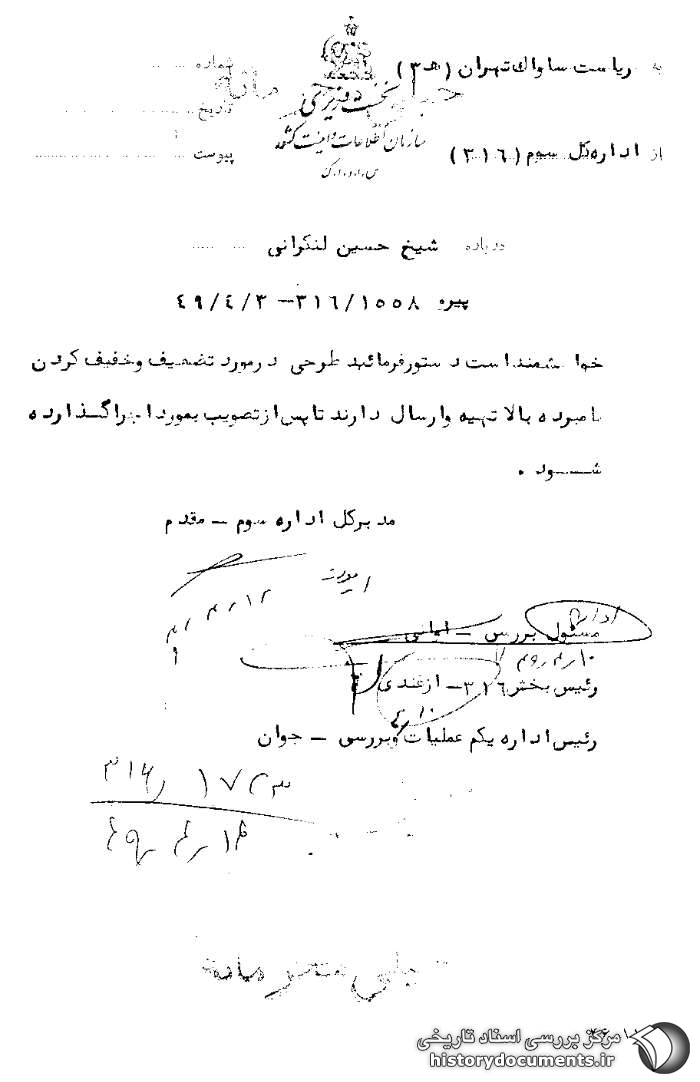 به ریاست ساواک تهران (۳هـ)
شماره
نخست وزیری
تاریخ
سازمان اطلاعات و امنیت کشور
س.ا.و.ا.ک
از اداره کل سوم (۳۱٦)
پیوست
درباره شیخ حسین لنکرانی
پیرو ۳۱٦/۱۵۵۸ – ۴۹/۴/۳
خواهشمند است دستور فرمائید طرحی در مورد تضعیف و خفیف کردن
نامبرده بالا تهیه و ارسال دارند تا پس از تصویب بمورد اجرا گذارده
شود .
مدیرکل اداره سوم – مقدم
مسئول بررسی –
رئیس بخش ۳۱٦ – ازغندی
رئیس اداره یکم عملیات و بررسی – جوان
۳۱۶/۱۷۲۳
۴۹/۴/۱۴
مرکز بررسی اسناد تاریخی
historydocuments.ir